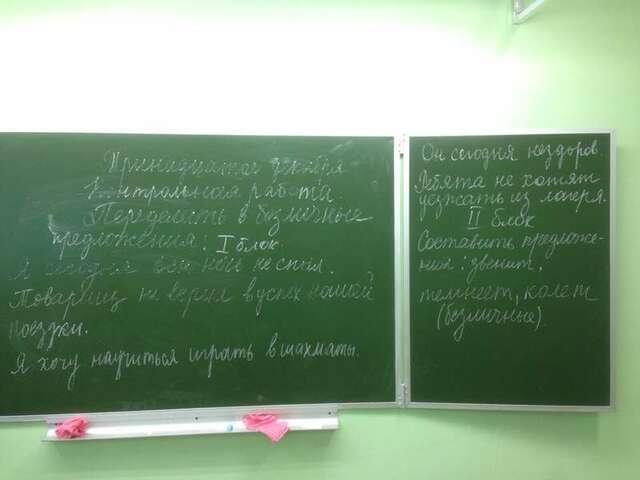 Тринадцатое декабря
Контрольная работа
Переделать в безличные
предложения: I блок.
Я сегодня всю ночь не спал.
Товарищ не верил в успех нашей
поездки.
Я хочу научиться играть в шахматы.
Он сегодня нездоров.
Ребята не хотят
уезжать из лагеря.
II блок
Составить предложе-
ния: звенит,
темнеет, колет
(безличные).